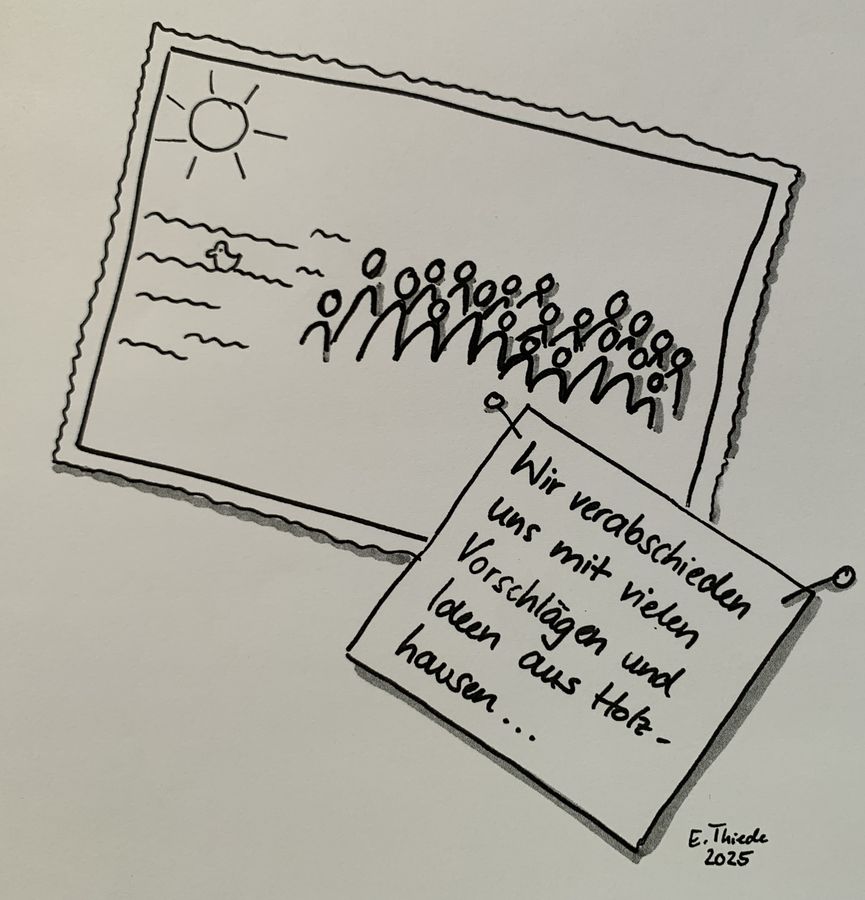 Wir verabschieden
uns mit vielen
Vorschlägen und
Ideen aus Holz-
hausen...
E. Thiede
2025